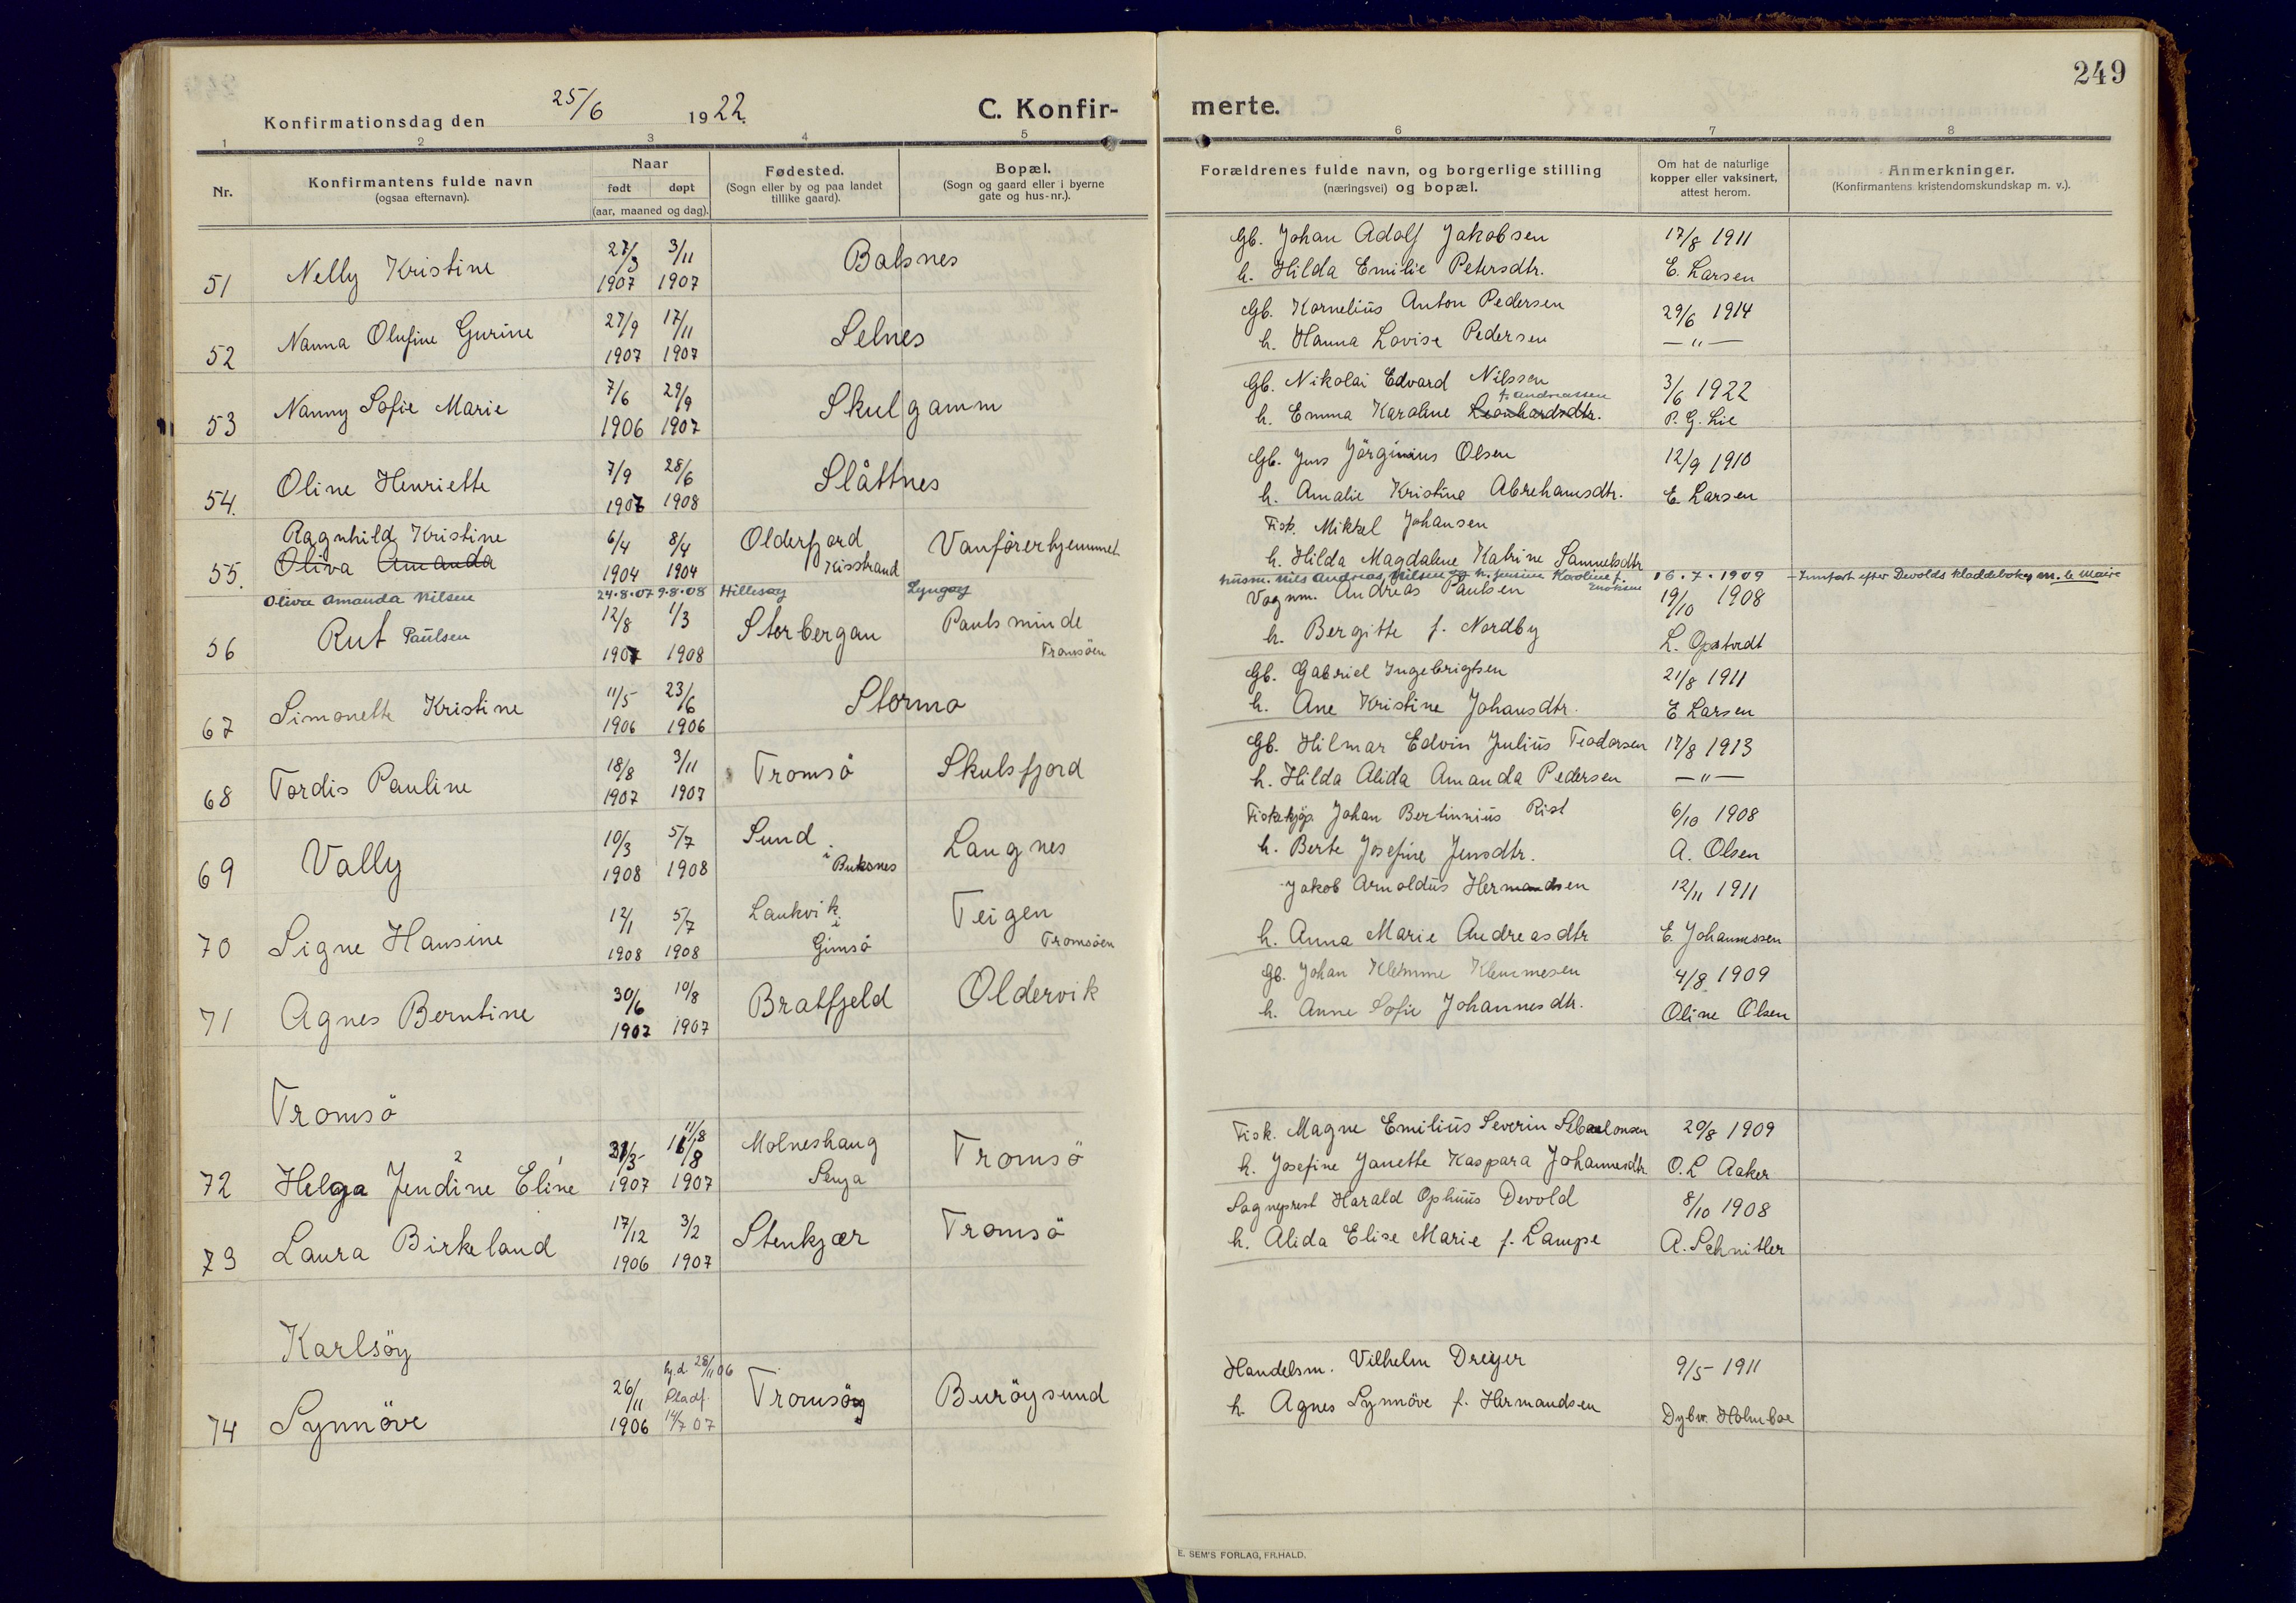 249
Konfirmationsdag den 25/6 1922. C. Konfir-merte.
1 2 3 4 5 6 7 8
Nr. Konfirmantens fulde navn (ogsaa efternavn). Naar født døpt (aar, maaned og dag). Fødested. (Sogn eller by og paa landet tillike gaard). Bopæl. (Sogn og gaard eller i byerne gate og hus-nr.). Forældrenes fulde navn, og borgerlige stilling (næringsvei) og bopæl. Om hat de naturlige kopper eller vaksinert, attest herom. Anmerkninger. (Konfirmantens kristendomskundskap m. v.).
51 Nelly Kristine 27/3 1907 3/11 1907 Balsnes Gb. Johan Adolf Jakobsen 17/8 1911
h. Hilda Emilie Petersdtr. E. Larsen
52 Nanna Olufine Gurine 27/9 1907 17/11 1907 Selnes Gb. Kornelius Anton Pedersen 29/6 1914
h. Hanna Lovise Pedersen —"—
53 Nanny Sofie Marie 7/6 1906 29/9 1907 Skulgamm Gb. Nikolai Edvard Nilssen 3/6 1922
f. Andreassen
h. Emma Karoline Leonhardsdtr. P. G. Lie
54. Oline Henriette 7/9 1907 28/6 1908 Slåttnes Gb. Jens Jörginius Olsen 12/9 1910
h. Amalie Kristine Abrehamsdtr. E. Larsen
55. Ragnhild Kristine 6/4 1904 8/4 1904 Olderfjord Kisstrand Vanförerhjemmet Fisk. Mikkel Johansen
Oliva Amanda h. Hilda Magdalene Katrine Samuelsdtr
Olive Amanda Nilsen 24.8.07 9.8.08 Hillesøy Lyngøy husm. Nils Andreas Nilsen og h. Jensine Karoline f. Enoksen 16.7.1909 - Innført efter Devolds kladdebok M. le Maire
56 Rut Paulsen 12/8 1907 1/3 1908 Storbergan Paulsminde Tromsöen Vognm. Andreas Paulsen 19/10 1908
h. Bergitte f. Nordby L. Opstvedt
67 Simonette Kristine 11/5 1906 23/6 1906 Stormo Gb. Gabriel Ingebrigtsen 21/8 1911
h. Ane Kristine Johansdtr. E Larsen
68 Tordis Pauline 18/8 1907 3/11 1907 Tromsö Skulsfjord Gb. Hilmar Edvin Julius Teodorsen 17/8 1913
h. Hilda Alida Amanda Pedersen —"—
69 Vally 10/3 1908 5/7 1908 Sund i Buksnes Langnes Fiskekjöp. Johan Bertinnius Rist 6/10 1908
h. Berte Josefine Jensdtr. A. Olsen
70 Signe Hansine 12/1 1908 5/7 1908 Laukvik i Gimsö Teigen Tromsöen Jakob Arnoldus Hermandsen 12/11 1911
h. Anna Marie Andreasdtr E. Johannessen
71 Agnes Berntine 30/6 1907 10/8 1907 Bratfjeld Oldervik Gb. Johan Klemme Klemmesen 4/8 1909
h. Anne Sofie Johannesdtr. Oline Olsen
Tromsö
72 Helga Jendine 2 Eline 1 31/3 1907 11/8 16/8 1907 Molneshaug Senja Tromsö Fisk. Magne Emilius Severin 20/8 1909
h. Josefine Janette Kaspara Johannesdtr O. L Aaker
73 Laura Birkeland 17/12 1906 3/2 1907 Stenkjær Tromsö Sogneprest Harald Ophuus Devold 8/10 1908
h. Alida Elise Marie f. Lampe A. Schnitler
Karlsöy
74 Synnöve 26/11 1906 hj.d. 28/11 06 Stadf. 14/7 07 Tromsöy Buröysund Handelsm. Vilhelm Dreyer 9/5 1911
h. Agnes Synnöve f. Hermandsen Dybw. Holmboe
E. SEM'S FORLAG, FR.HALD.